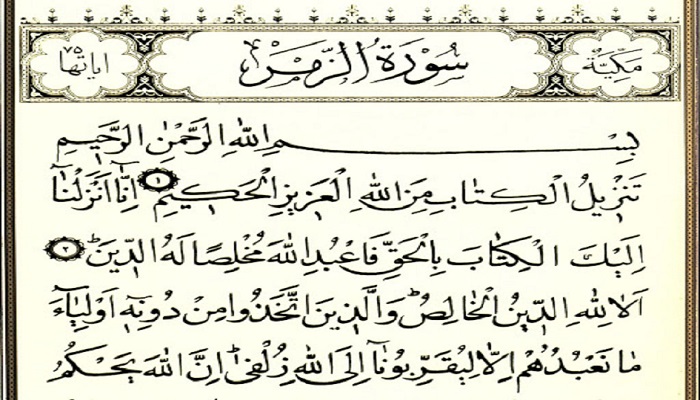 مَكِّيَّةٌ سُورَةُ الزُّمَرِ اٰيَاتُهَا ٧٥
بِسْــــــمِ اللّٰهِ الرَّحْمٰنِ الرَّحٖيمِ
تَنْزٖيلُ الْكِتَابِ مِنَ اللّٰهِ الْعَزٖيزِ الْحَكٖيمِ ١ اِنَّٓا اَنْزَلْنَٓا
اِلَيْكَ الْكِتَابَ بِالْحَقِّ فَاعْبُدِ اللّٰهَ مُخْلِصًا لَهُ الدّٖينَۜ ٢
اَلَا لِلّٰهِ الدّٖينُ الْخَالِصُۜ وَالَّذٖينَ اتَّخَذُوا مِنْ دُونِهٖٓ اَوْلِيَٓاءَ
مَا نَعْبُدُهُمْ اِلَّا لِيُقَرِّبُونَٓا اِلَى اللّٰهِ زُلْفٰىۜ اِنَّ اللّٰهَ يَحْكُمُ